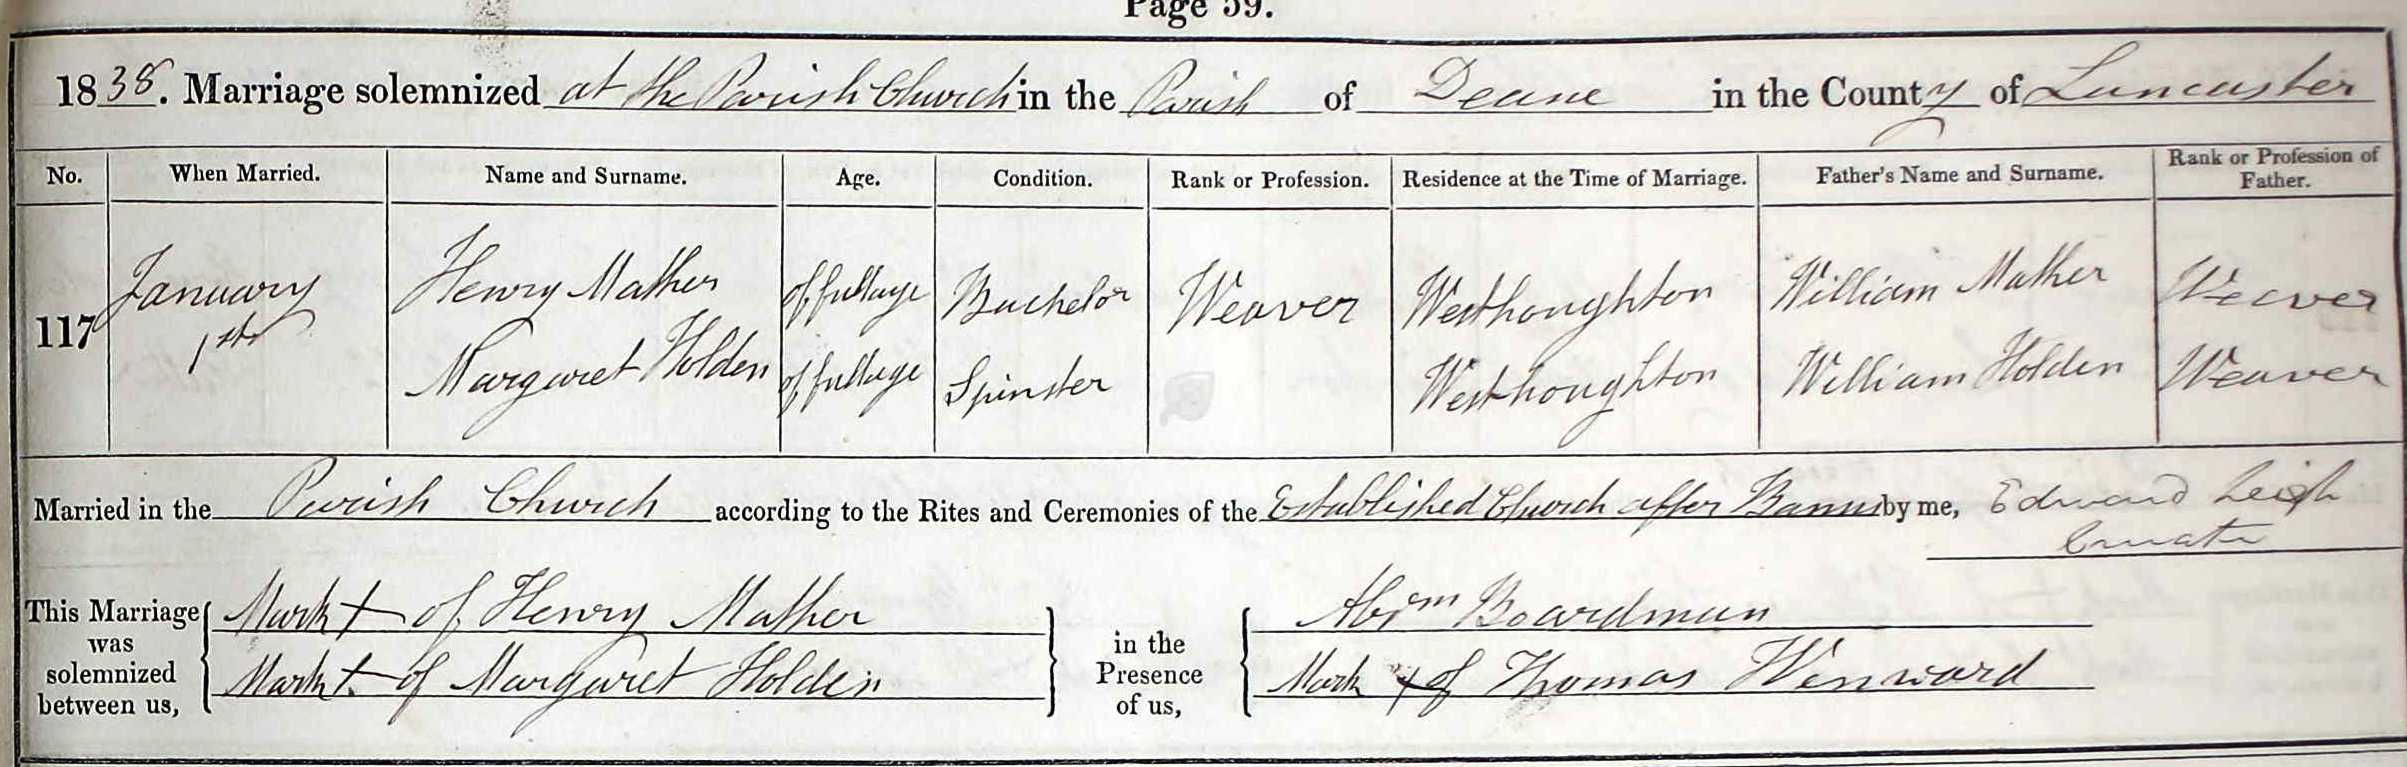 Page 59.
1838. Marriage solemnized at the Parish Church in the Parish of Deane in the County of Lancaster
No. When Married. Name and Surname. Age. Condition. Rank or Profession. Residence at the Time of Marriage. Father's Name and Surname. Rank or Profession of Father.
January Henry Mather of full age Bachelor Weaver Westhoughton William Mather Weaver
117 1st Margaret Holden of full age Spinster Westhoughton William Holden Weaver
Married in the Parish Church according to the Rites and Ceremonies of the Established Church after Banns by me, Edward Leigh
Curate
This Marriage was solemnized between us, Mark + of Henry Mather
Mark + of Margaret Holden
in the Presence of us, Abrm Boardman
Mark + of Thomas Winward